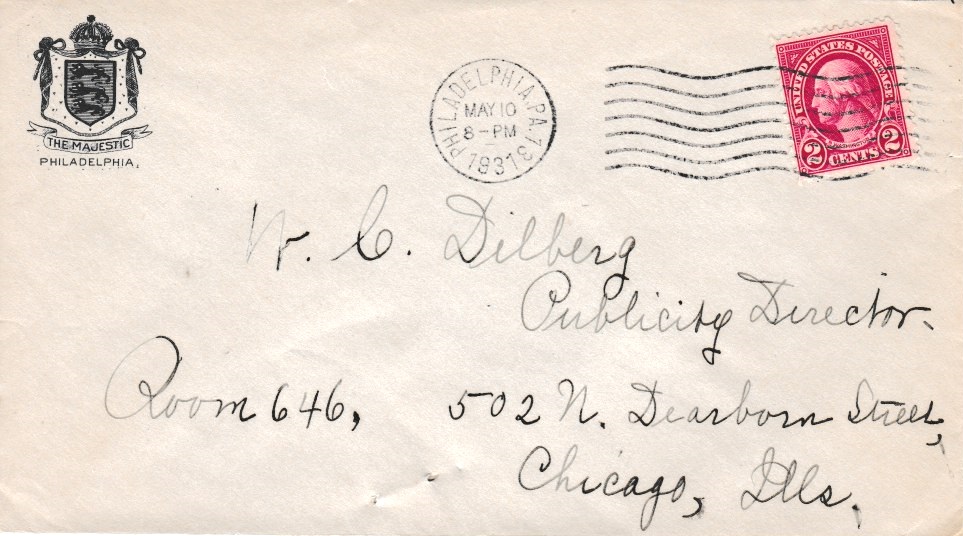 THE MAJESTIC
PHILADELPHIA.
PHILADELPHIA, PA. 13
MAY 10
8-PM
1931
UNITED STATES POSTAGE
WASHINGTON
2 CENTS 2
W. C. Dilberg
Publicity Director.
Room 646, 502 N. Dearborn Street,
Chicago, Ills.